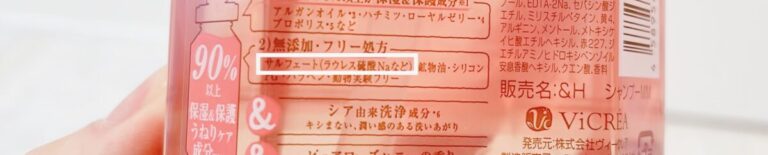 90%
以上
保湿&保護
うねりケア
成分
&
&
アルガンオイル*3・ハチミツ・ローヤルゼリー*4
プロポリス*5など
2)無添加・フリー処方
サルフェート(ラウレス硫酸Naなど) 鉱物油・シリコン
パラベン・動物実験フリー
シア由来洗浄成分*6
キシまない、潤い感のある洗いあがり
ール、EDTA-2Na、セバシン酸ジ
エチル、ミリスチルベタイン、黄4、
アルギニン、メントール、メトキシケイ
ヒ酸エチルヘキシル、赤227、ジ
エチルアミノヒドロキシベンゾイル
安息香酸ヘキシル、クエン酸、香料
販売名:&H シャンプーMM
ViCREA
発売元:株式会社ヴィークレア